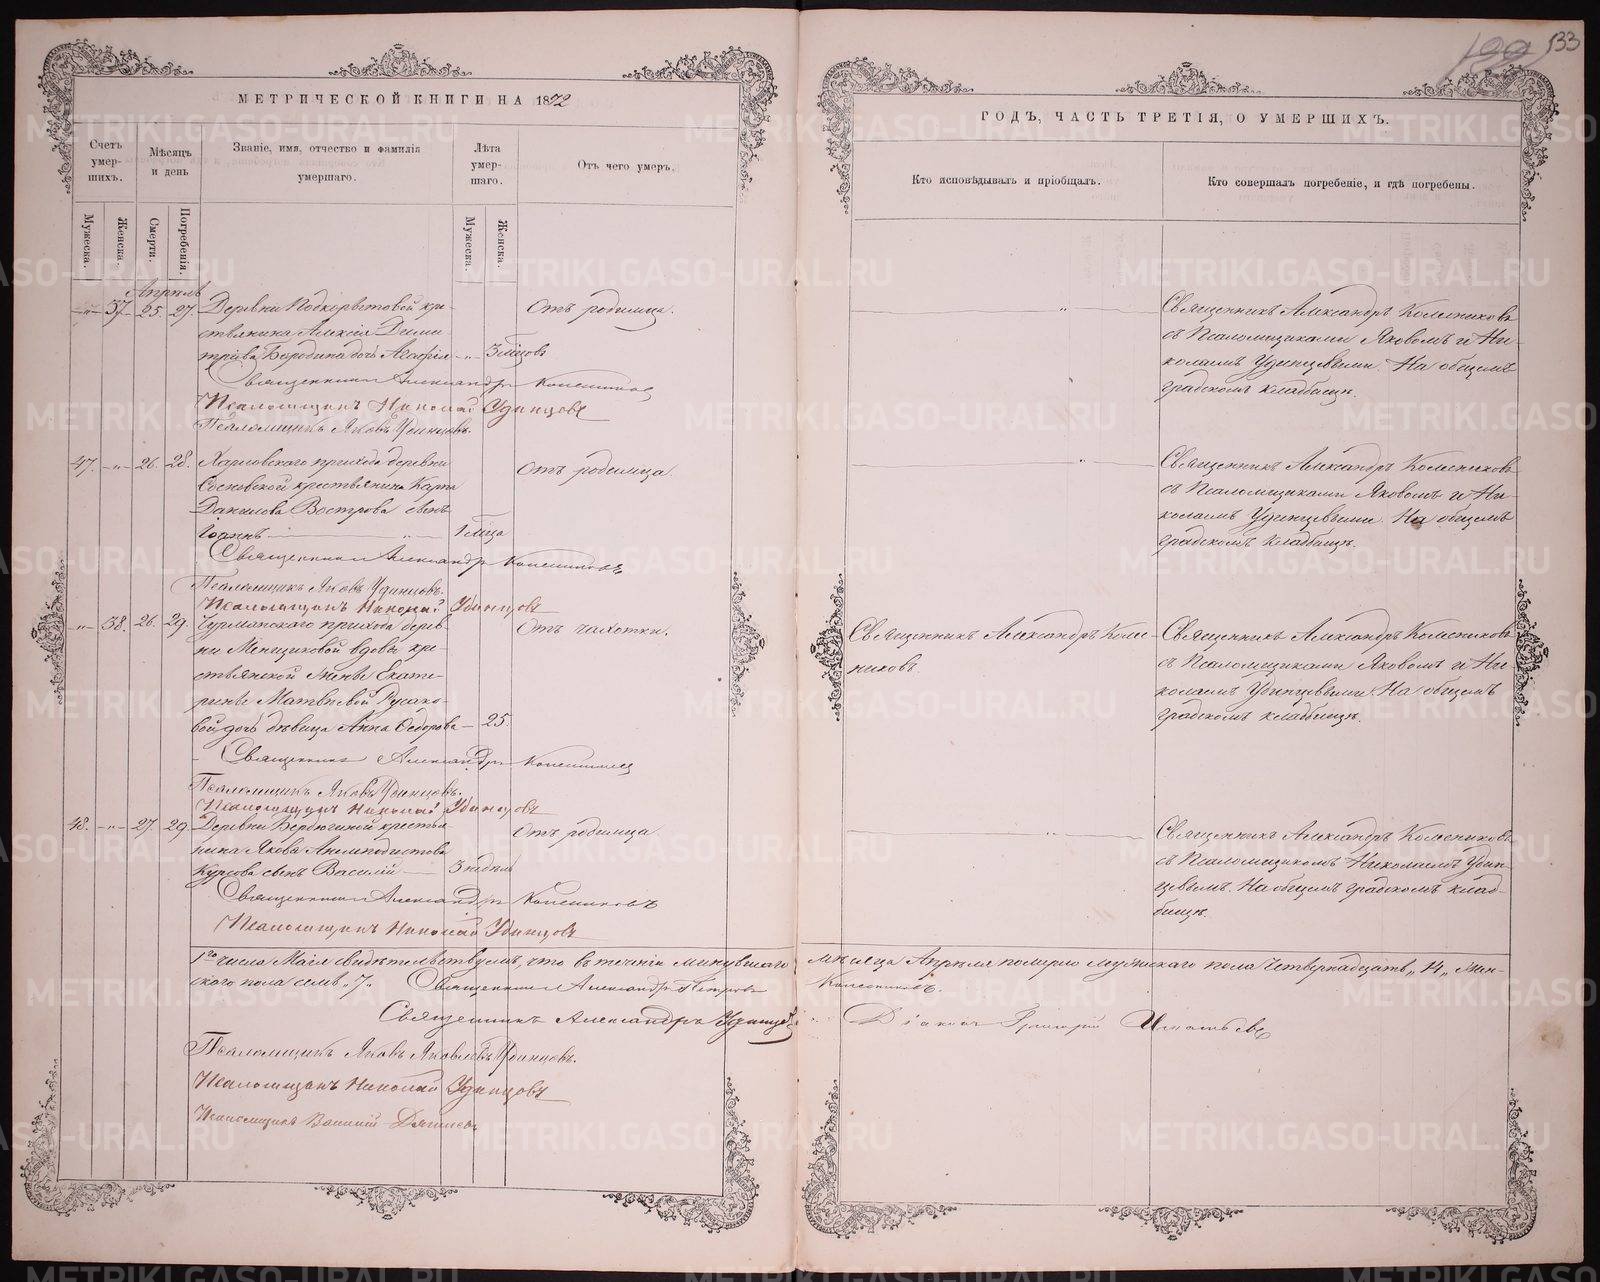 133
МЕТРИЧЕСКОЙ КНИГИ НА 1872
Счетъ умер-шихъ.
Мѣсяцъ и день
Званіе, имя, отчество и фамилія умершаго.
Лѣта умер-шаго.
Отъ чего умеръ.
Мужеска.
Женска.
Смерти.
Погребенія.
Мужеска.
Женска.
ГОДЪ, ЧАСТЬ ТРЕТІЯ, О УМЕРШИХЪ.
Кто исповѣдывалъ и пріобщалъ.
Кто совершалъ погребеніе, и гдѣ погребены.
Апрѣль
37 25. 27. Деревни Подкорытовой кре-
стьянина Алексія Дими-
тріева Бородина дочь Агафія 3 мѣсцовъ
Отъ родимца.
Священникъ Александръ Колесниковъ
съ Псаломщиками Яковомъ и Ни-
колаемъ Удинцевыми. На общемъ
градскомъ кладбищѣ.
Священникъ Александръ Колесниковъ
Псаломщикъ Николай Удинцовъ
Псаломщикъ Яковъ Удинцовъ.
47. 26. 28. Харловскаго прихода деревни
Сосновской крестьянина Карпа
Данилова Вострова сынъ
Іоаннъ 1 мѣсца
Отъ родимца
Священникъ Александръ Колесниковъ
съ Псаломщиками Яковомъ и Ни-
колаемъ Удинцевыми. На общемъ
градскомъ кладбищѣ.
Священникъ Александръ Колесниковъ
Псаломщикъ Яковъ Удинцовъ.
Псаломщикъ Николай Удинцовъ
38. 26. 29. прихода дерев-
ни Менщиковой вдовы кре-
стьянской жены Екате-
рины Матвѣевой Русако-
вой дочь дѣвица Анна Ѳедорова 25.
Отъ чахотки.
Священникъ Александръ Колес-
никовъ.
Священникъ Александръ Колесниковъ
съ Псаломщиками Яковомъ и Ни-
колаемъ Удинцевыми. На общемъ
градскомъ кладбищѣ.
Священникъ Александръ Колесниковъ
Псаломщикъ Яковъ Удинцовъ.
Псаломщикъ Николай Удинцовъ
48. 27. 29. Деревни Бердюгиной крестья-
нина Якова Анемподистова
Курсова сынъ Василій 3 недѣль
Отъ родимца
Священникъ Александръ Колесниковъ
съ Псаломщикомъ Николаемъ Удин-
цевымъ. На общемъ градскомъ клад-
бищѣ.
Священникъ Александръ Колесниковъ
Псаломщикъ Николай Удинцовъ
1го числа Маія свидѣтельствуемъ, что въ теченіи минувшаго мѣсяца Апрѣля померло мужескаго пола четырнадцать „14„ Жен-
скаго пола семь „7„ Священникъ Александръ Петровъ Колесниковъ.
Священникъ Александръ Удинцевъ
Діаконъ Григорій Игнатьевъ
Псаломщикъ Яковъ Яковлевъ Удинцовъ.
Псаломщикъ Николай Удинцовъ
Псаломщикъ Василій Дягилевъ
METRIKI.GASO-URAL.RU